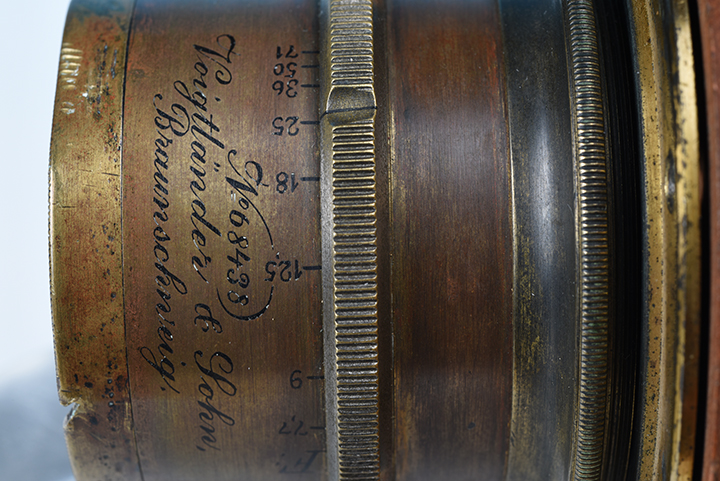 71 50 36 25 18 12,5 9 7,7
No 68438
Voigtländer & Sohn,
Braunschweig.